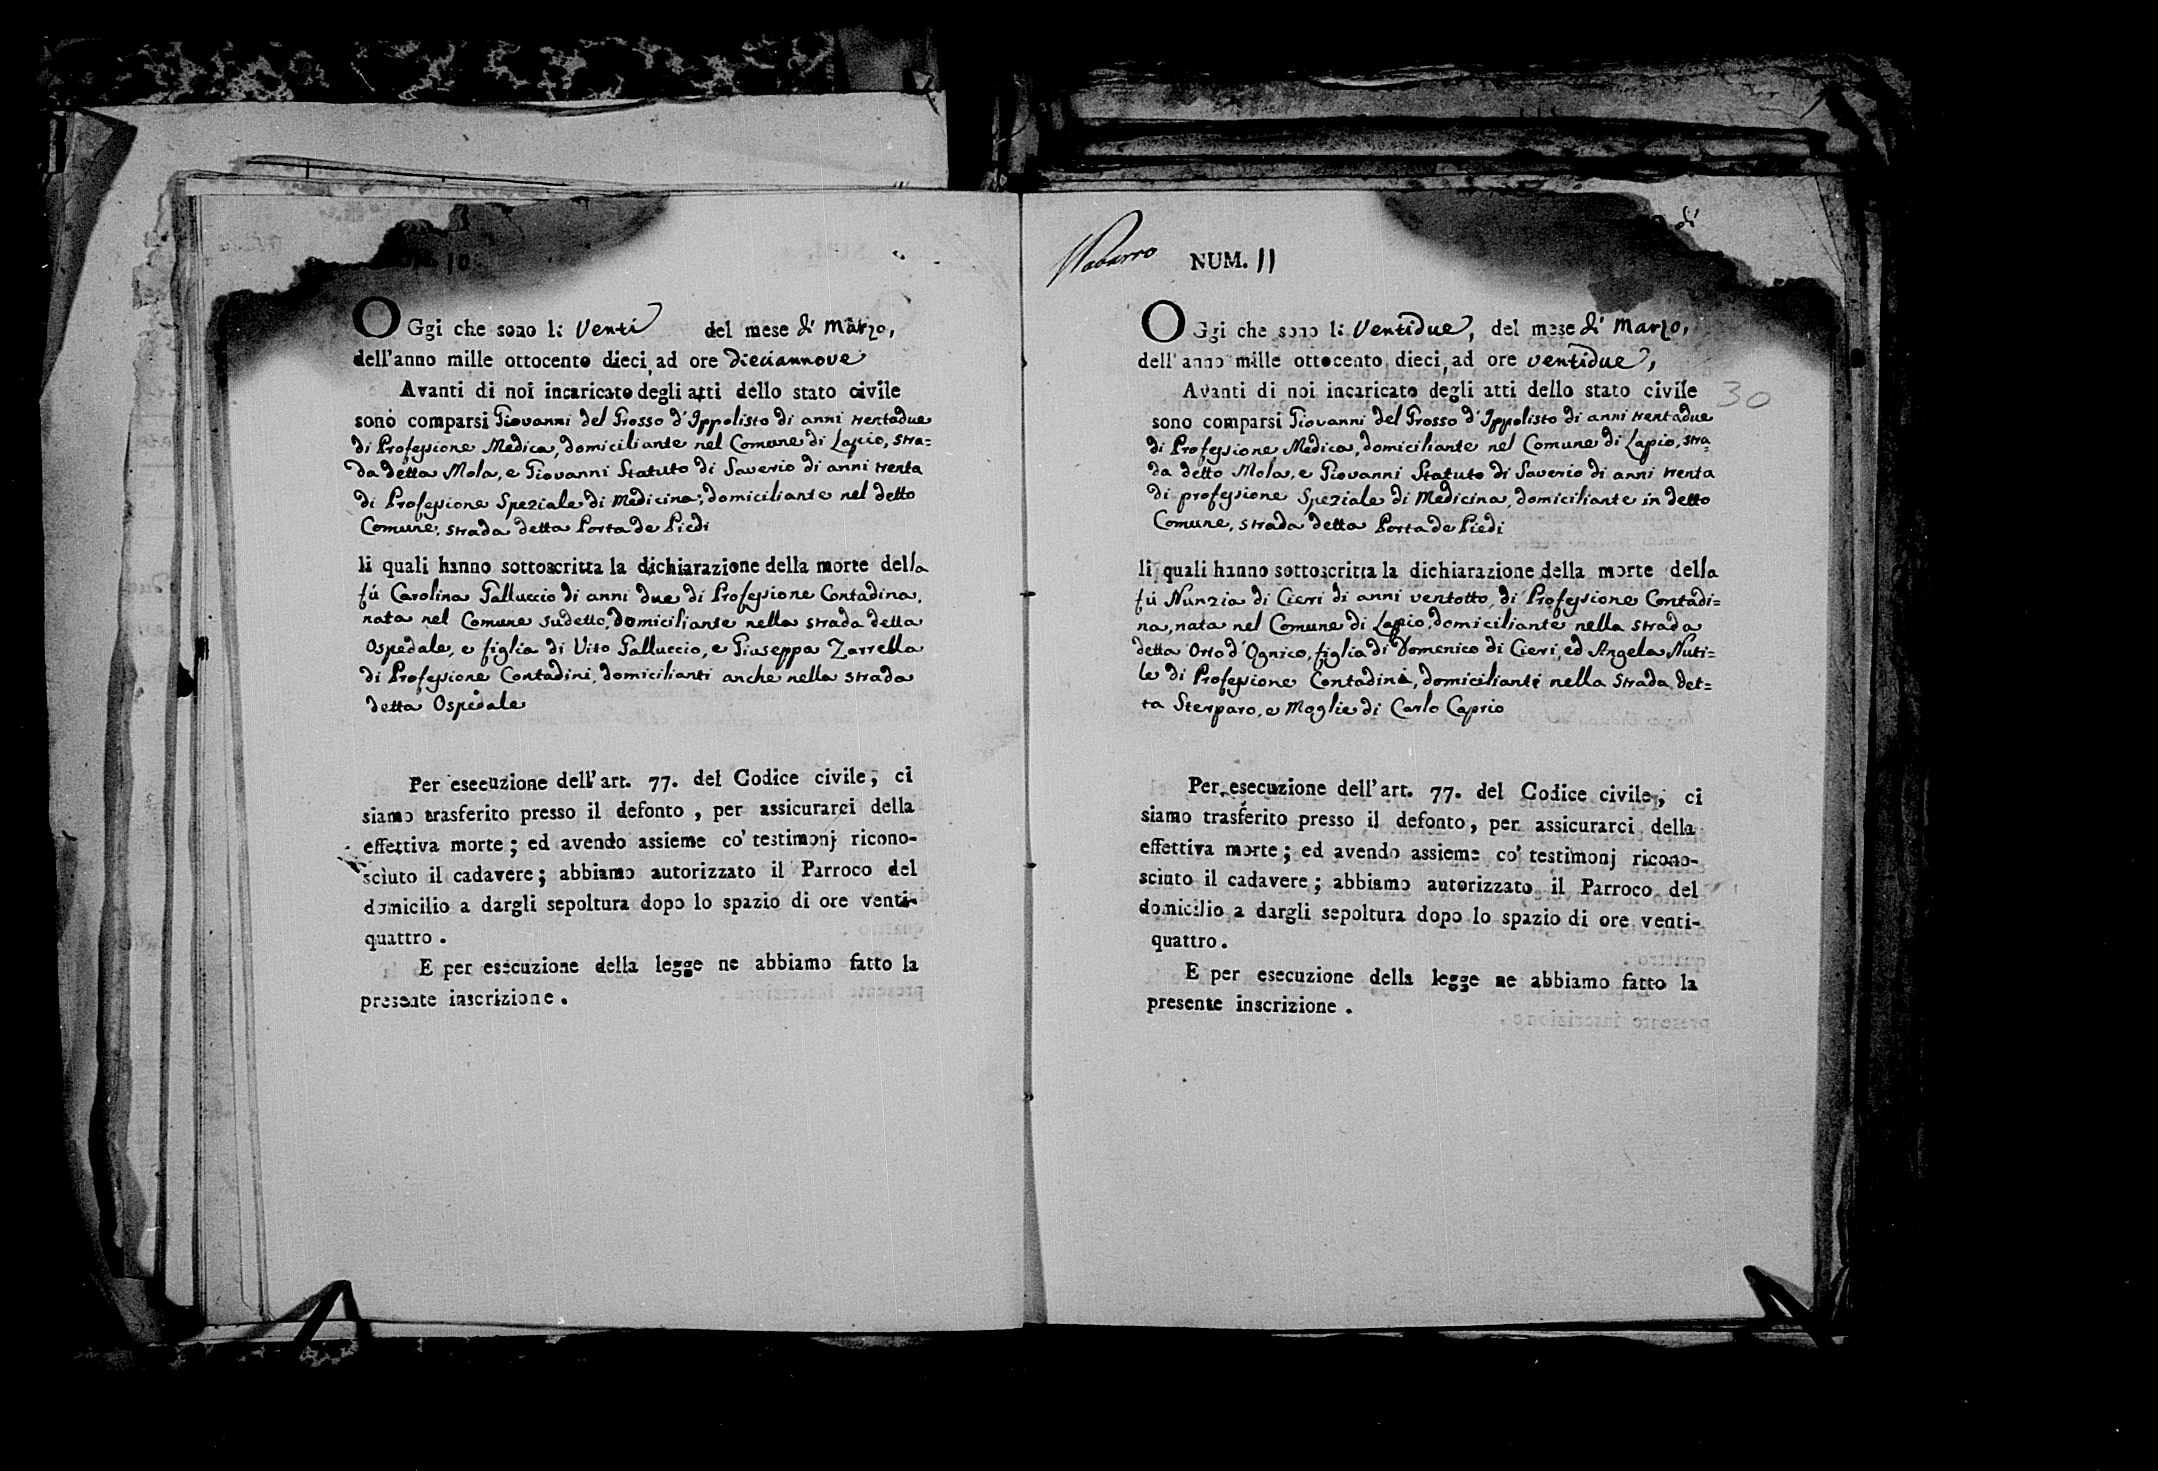 10
OGgi che sono li Venti del mese di Marzo,
dell'anno mille ottocento dieci, ad ore dieciannove
Avanti di noi incaricato degli atti dello stato civile
sono comparsi Giovanni del Grosso d'Ippolisto di anni trentadue
di Professione Medica, domiciliante nel Comune di Lapio, stra=
da detta Mola, e Giovanni Statuto di Saverio di anni trenta
di Professione Speziale di Medicina, domiciliante nel detto
Comune, strada detta Porta de Piedi
li quali hanno sottoscritta la dichiarazione della morte della
fú Carolina Galluccio di anni due di Professione Contadina,
nata nel Comune sudetto, domiciliante nella strada detta
Ospedale, e figlia di Vito Galluccio, e Giuseppa Zarrella
di Professione Contadini, domicilianti anche nella strada
detta Ospedale
Per esecuzione dell'art. 77. del Codice civile, ci
siamo trasferito presso il defonto, per assicurarci della
effettiva morte; ed avendo assieme co' testimonj ricono-
sciuto il cadavere; abbiamo autorizzato il Parroco del
domicilio a dargli sepoltura dopo lo spazio di ore venti-
quattro.
E per esecuzione della legge ne abbiamo fatto la
presente inscrizione.
di
Navarro NUM. 11
OGgi che sono li Ventidue, del mese di Marzo,
dell'anno mille ottocento dieci, ad ore ventidue,
Avanti di noi incaricato degli atti dello stato civile 30
sono comparsi Giovanni del Grosso d'Ippolisto di anni trentadue
di Professione Medica, domiciliante nel Comune di Lapio, stra=
da detto Mola, e Giovanni Statuto di Saverio di anni trenta
di professione Speziale di Medicina, domiciliante in detto
Comune, strada detta Porta de Piedi
li quali hanno sottoscritta la dichiarazione della morte della
fú Nunzia di Cieri di anni ventotto, di Professione Contadi=
na, nata nel Comune di Lapio, domiciliante nella strada
detta Orto d'Ognico, figlia di Domenico di Cieri, ed Angela Nuti=
le di Professione Contadini, domicilianti nella Strada det=
ta Sterparo, e Moglie di Carlo Caprio
Per esecuzione dell'art. 77. del Codice civile, ci
siamo trasferito presso il defonto, per assicurarci della
effettiva morte; ed avendo assieme co' testimonj ricono-
sciuto il cadavere; abbiamo autorizzato il Parroco del
domicilio a dargli sepoltura dopo lo spazio di ore venti-
quattro.
E per esecuzione della legge ne abbiamo fatto la
presente inscrizione.